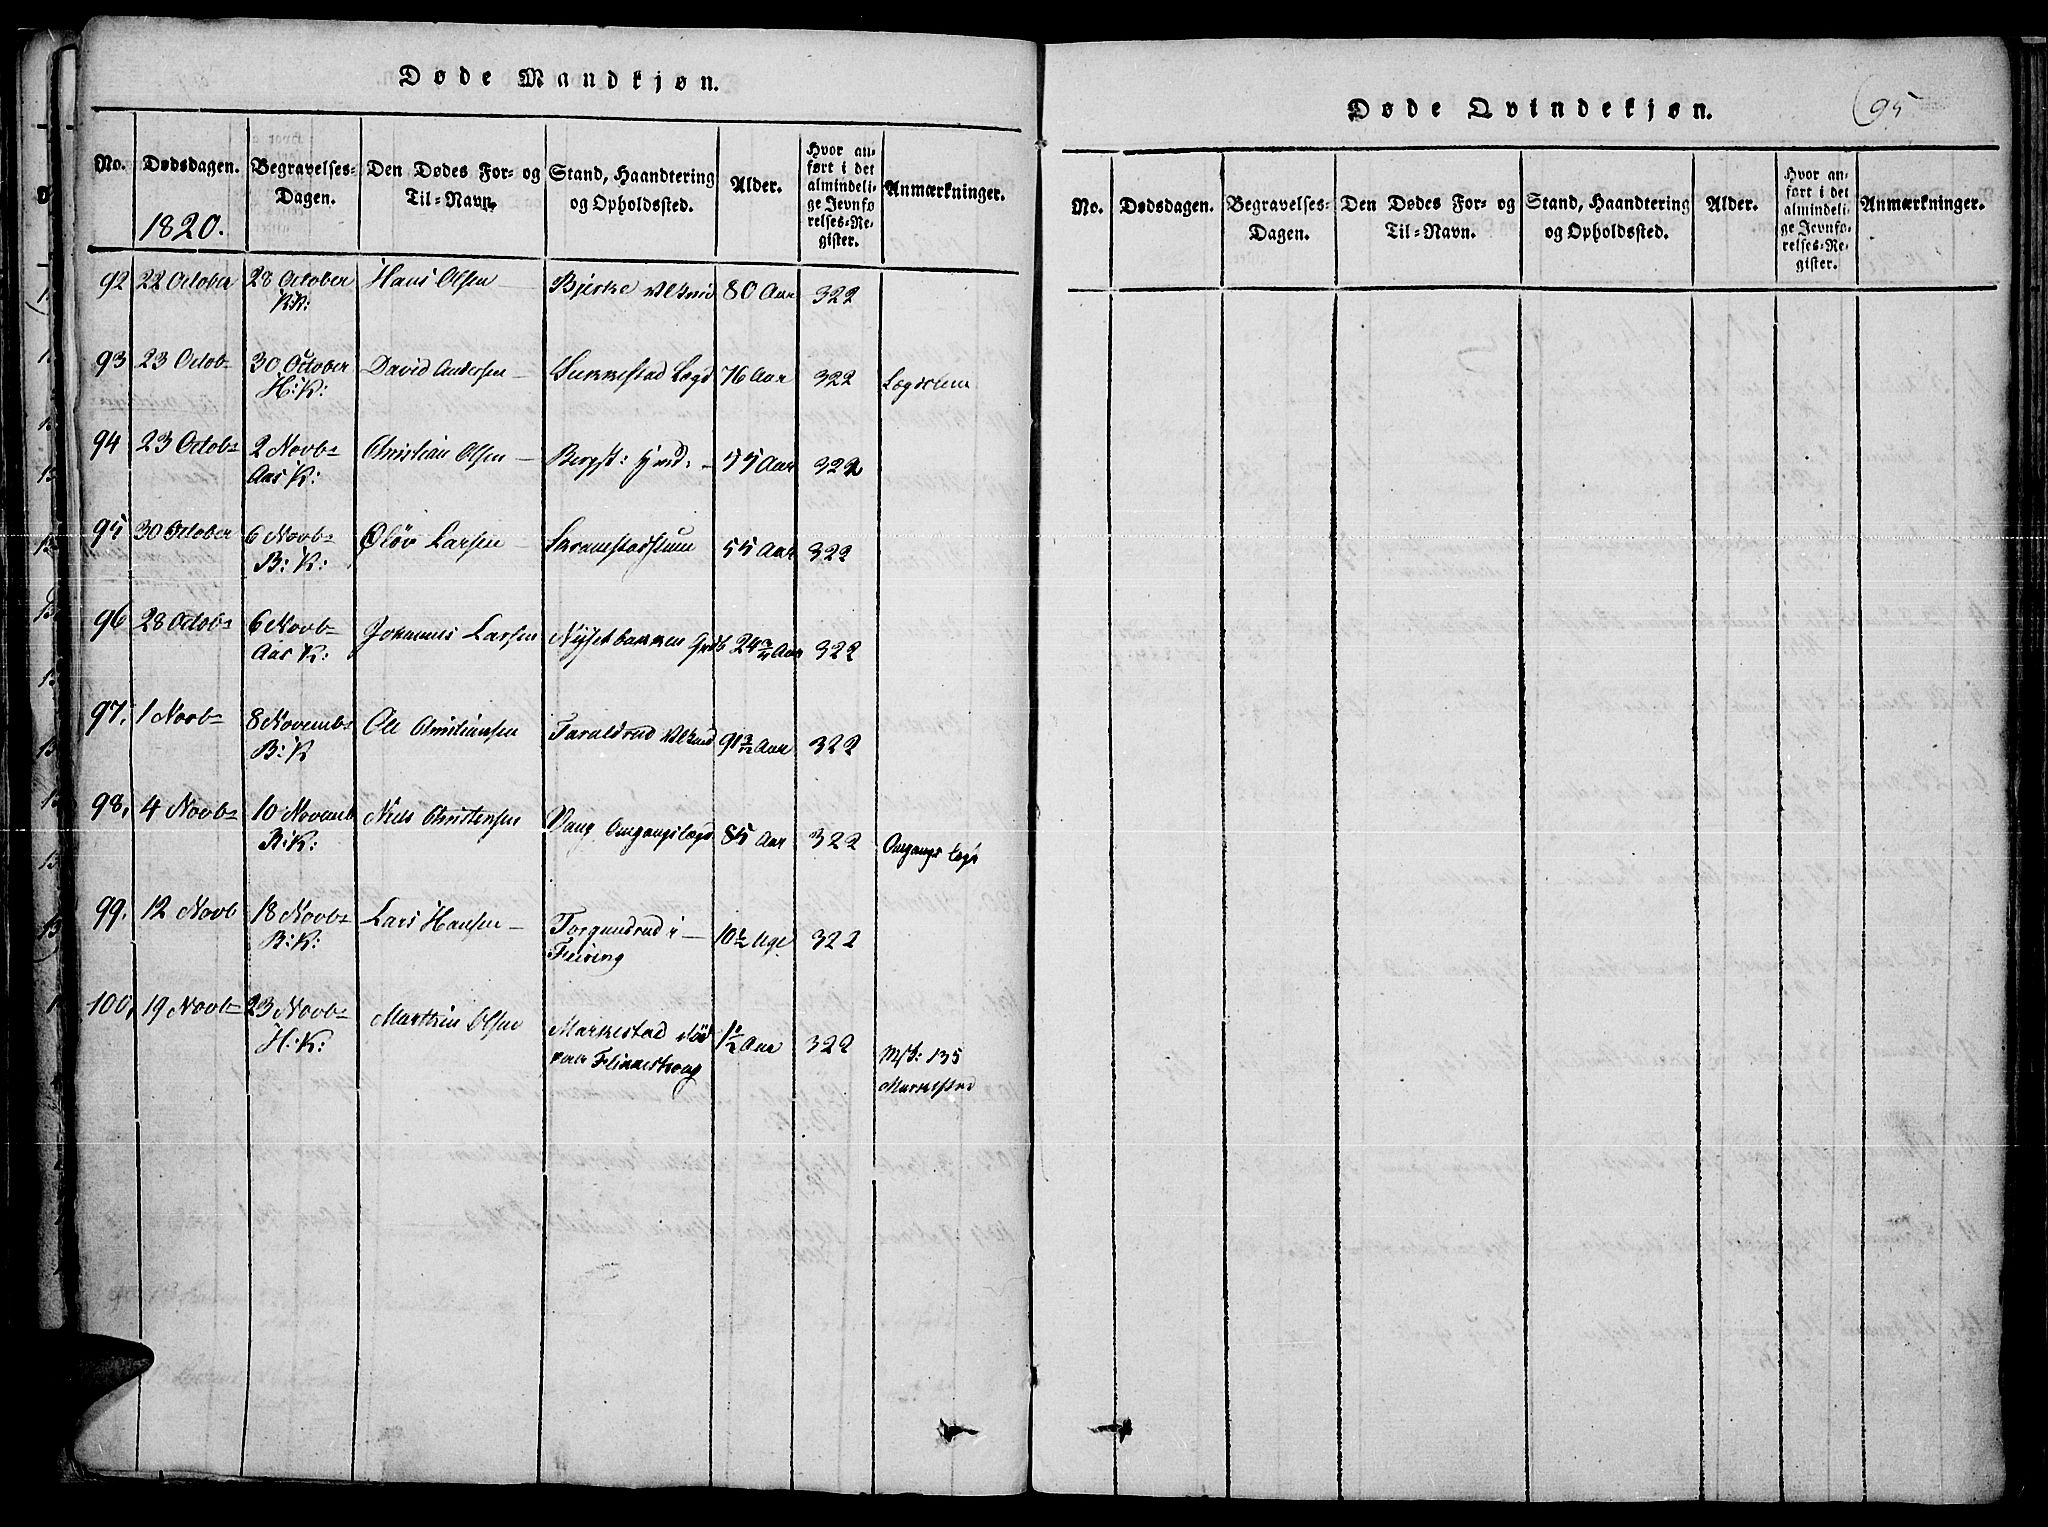 Døde Mandkjøn.
No. Dødsdagen. Begravelses-Dagen. Den Dødes For- og Til-Navn. Stand, Haandtering og Opholdssted. Alder. Hvor anført i det almindelige Jevnførelses-Register. Anmærkninger.
1820.
92 22 October 28 October Hans Olsen Bjerke 80 Aar 322
K:
93 23 Octob= 30 October David Andersen Sukkestad Lægd 76 Aar 322 Lægdslem
H: K:
94 23 Octob= 2 Novb= Christian Olsen 55 Aar 322
Aas K:
95 30 October 6 Novb= Oløv Larsen 55 Aar 322
B: K:
96 28 Octob= 6 Novb= Johannes Larsen Nysetbakken 24 3/4 Aar 322
Aas K:
97. 1 Novb= 8 Novemb= Ole Christiansen Taraldrud 91 3/12 Aar 322
B: K
98. 4 Novb= 10 Novemb Niels Christensen Vang Omgangslægd 85 Aar 322 Omgangs Lægd
B: K:
99. 12 Novb 18 Novb= Lars Hansen Torgundrud i 10 1/2 Uge 322
B: K: Feiring
100, 19 Novb= 23 Novb= Marthin Olsen Markestad 1 1/2 Aar 322 135
H: K: Markestad
Døde Qvindekjøn.
95
No. Dødsdagen. Begravelses-Dagen. Den Dødes For- og Til-Navn. Stand, Haandtering og Opholdssted. Alder. Hvor anført i det almindelige Jevnførelses-Register. Anmærkninger.